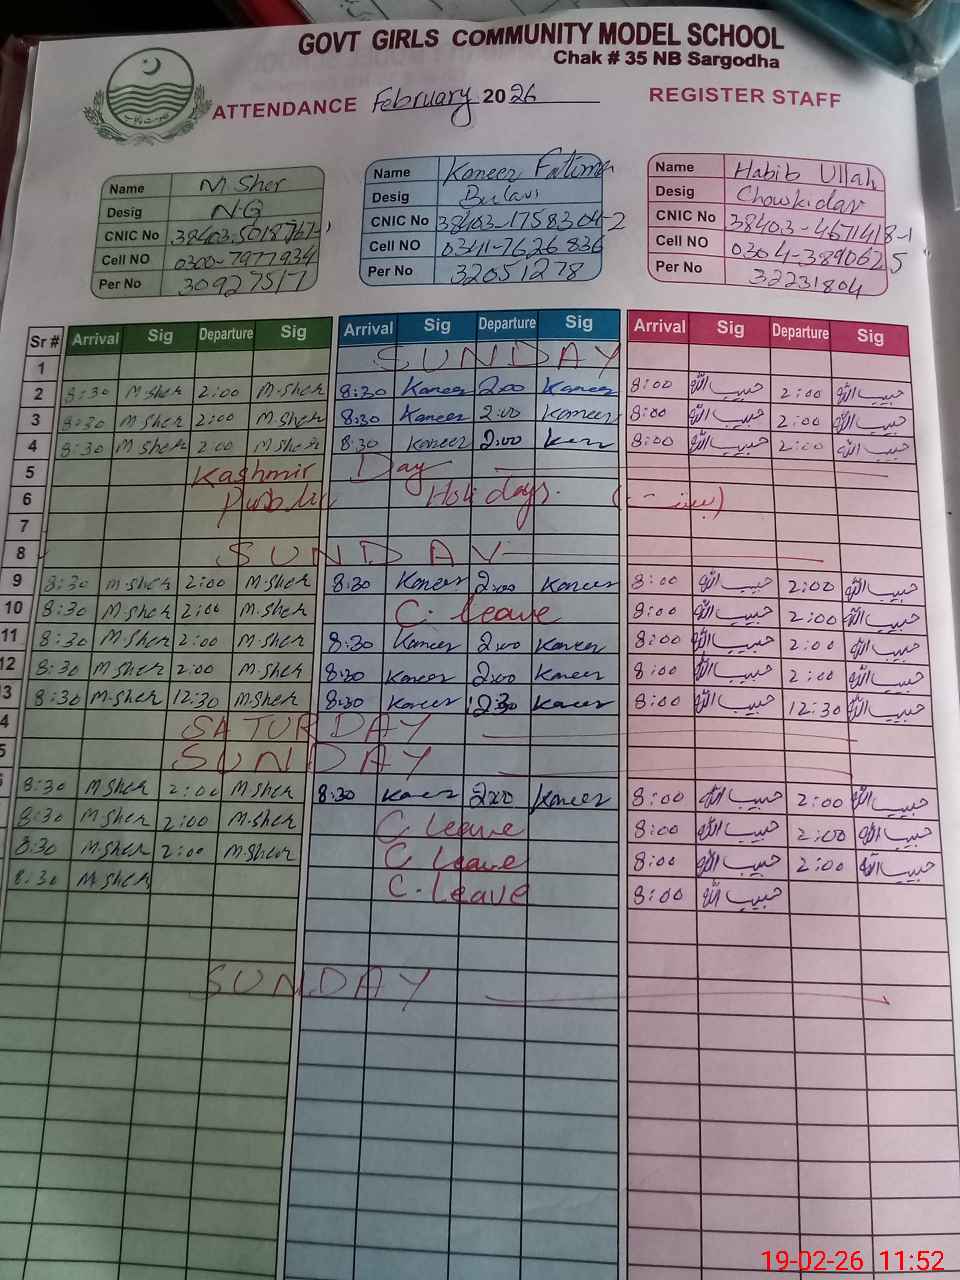 GOVT GIRLS COMMUNITY MODEL SCHOOL
Chak # 35 NB Sargodha
ATTENDANCE February 2026 REGISTER STAFF
Name M Sher
Desig N-Q
CNIC No 38403-5018767-1
Cell NO 0300-7977934
Per No 30927517
Name Kaneez Fatima
Desig
CNIC No 38403-1758304-2
Cell NO 0341-7626836
Per No 32051278
Name Habib Ullah
Desig Chowkidar
CNIC No 38403-4671418-1
Cell NO 0304-3890625
Per No 32231804
Sr # Arrival Sig Departure Sig Arrival Sig Departure Sig Arrival Sig Departure Sig
1 SUNDAY
2 8:30 M-Sher 2:00 M-Sher 8:30 Kaneez 2:00 Kaneez 8:00 حبیب اللہ 2:00 حبیب اللہ
3 8:30 M-Sher 2:00 M-Sher 8:30 Kaneez 2:00 Kaneez 8:00 حبیب اللہ 2:00 حبیب اللہ
4 8:30 M-Sher 2:00 M-Sher 8:30 Kaneez 2:00 8:00 حبیب اللہ 2:00 حبیب اللہ
5 Kashmir Day
6 Public Holidays. (بسنت)
7
8 SUNDAY
9 8:30 M-Sher 2:00 M-Sher 8:30 Kaneez 2:00 Kaneez 8:00 حبیب اللہ 2:00 حبیب اللہ
10 8:30 M-Sher 2:00 M-Sher C. leave 8:00 حبیب اللہ 2:00 حبیب اللہ
11 8:30 M-Sher 2:00 M-Sher 8:30 Kaneez 2:00 Kaneez 8:00 حبیب اللہ 2:00 حبیب اللہ
12 8:30 M-Sher 2:00 M-Sher 8:30 Kaneez 2:00 Kaneez 8:00 حبیب اللہ 2:00 حبیب اللہ
3 8:30 M-Sher 12:30 M-Sher 8:30 Kaneez 12:30 Kaneez 8:00 حبیب اللہ 12:30 حبیب اللہ
4 SATURDAY
5 SUNDAY
8:30 M-Sher 2:00 M-Sher 8:30 Kaneez 2:00 Kaneez 8:00 حبیب اللہ 2:00 حبیب اللہ
8:30 M-Sher 2:00 M-Sher C leave 8:00 حبیب اللہ 2:00 حبیب اللہ
8:30 M-Sher 2:00 M-Sher C leave 8:00 حبیب اللہ 2:00 حبیب اللہ
8:30 M-Sher C. leave 8:00 حبیب اللہ
SUNDAY
19-02-26 11:52